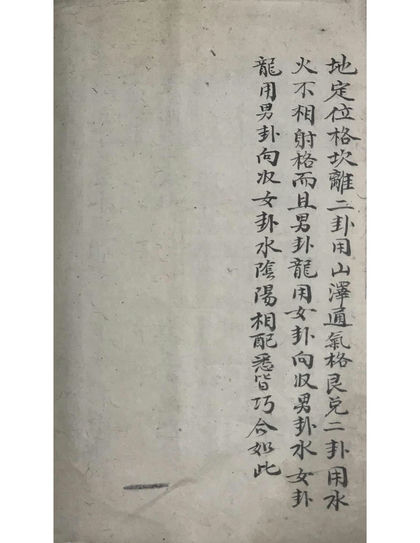 地定位格坎離二卦用山澤通氣格艮兑二卦用水
火不相射格而且男卦龍用女卦向収男卦水女卦
龍用男卦向収女卦水陰陽相配悉皆巧合如此